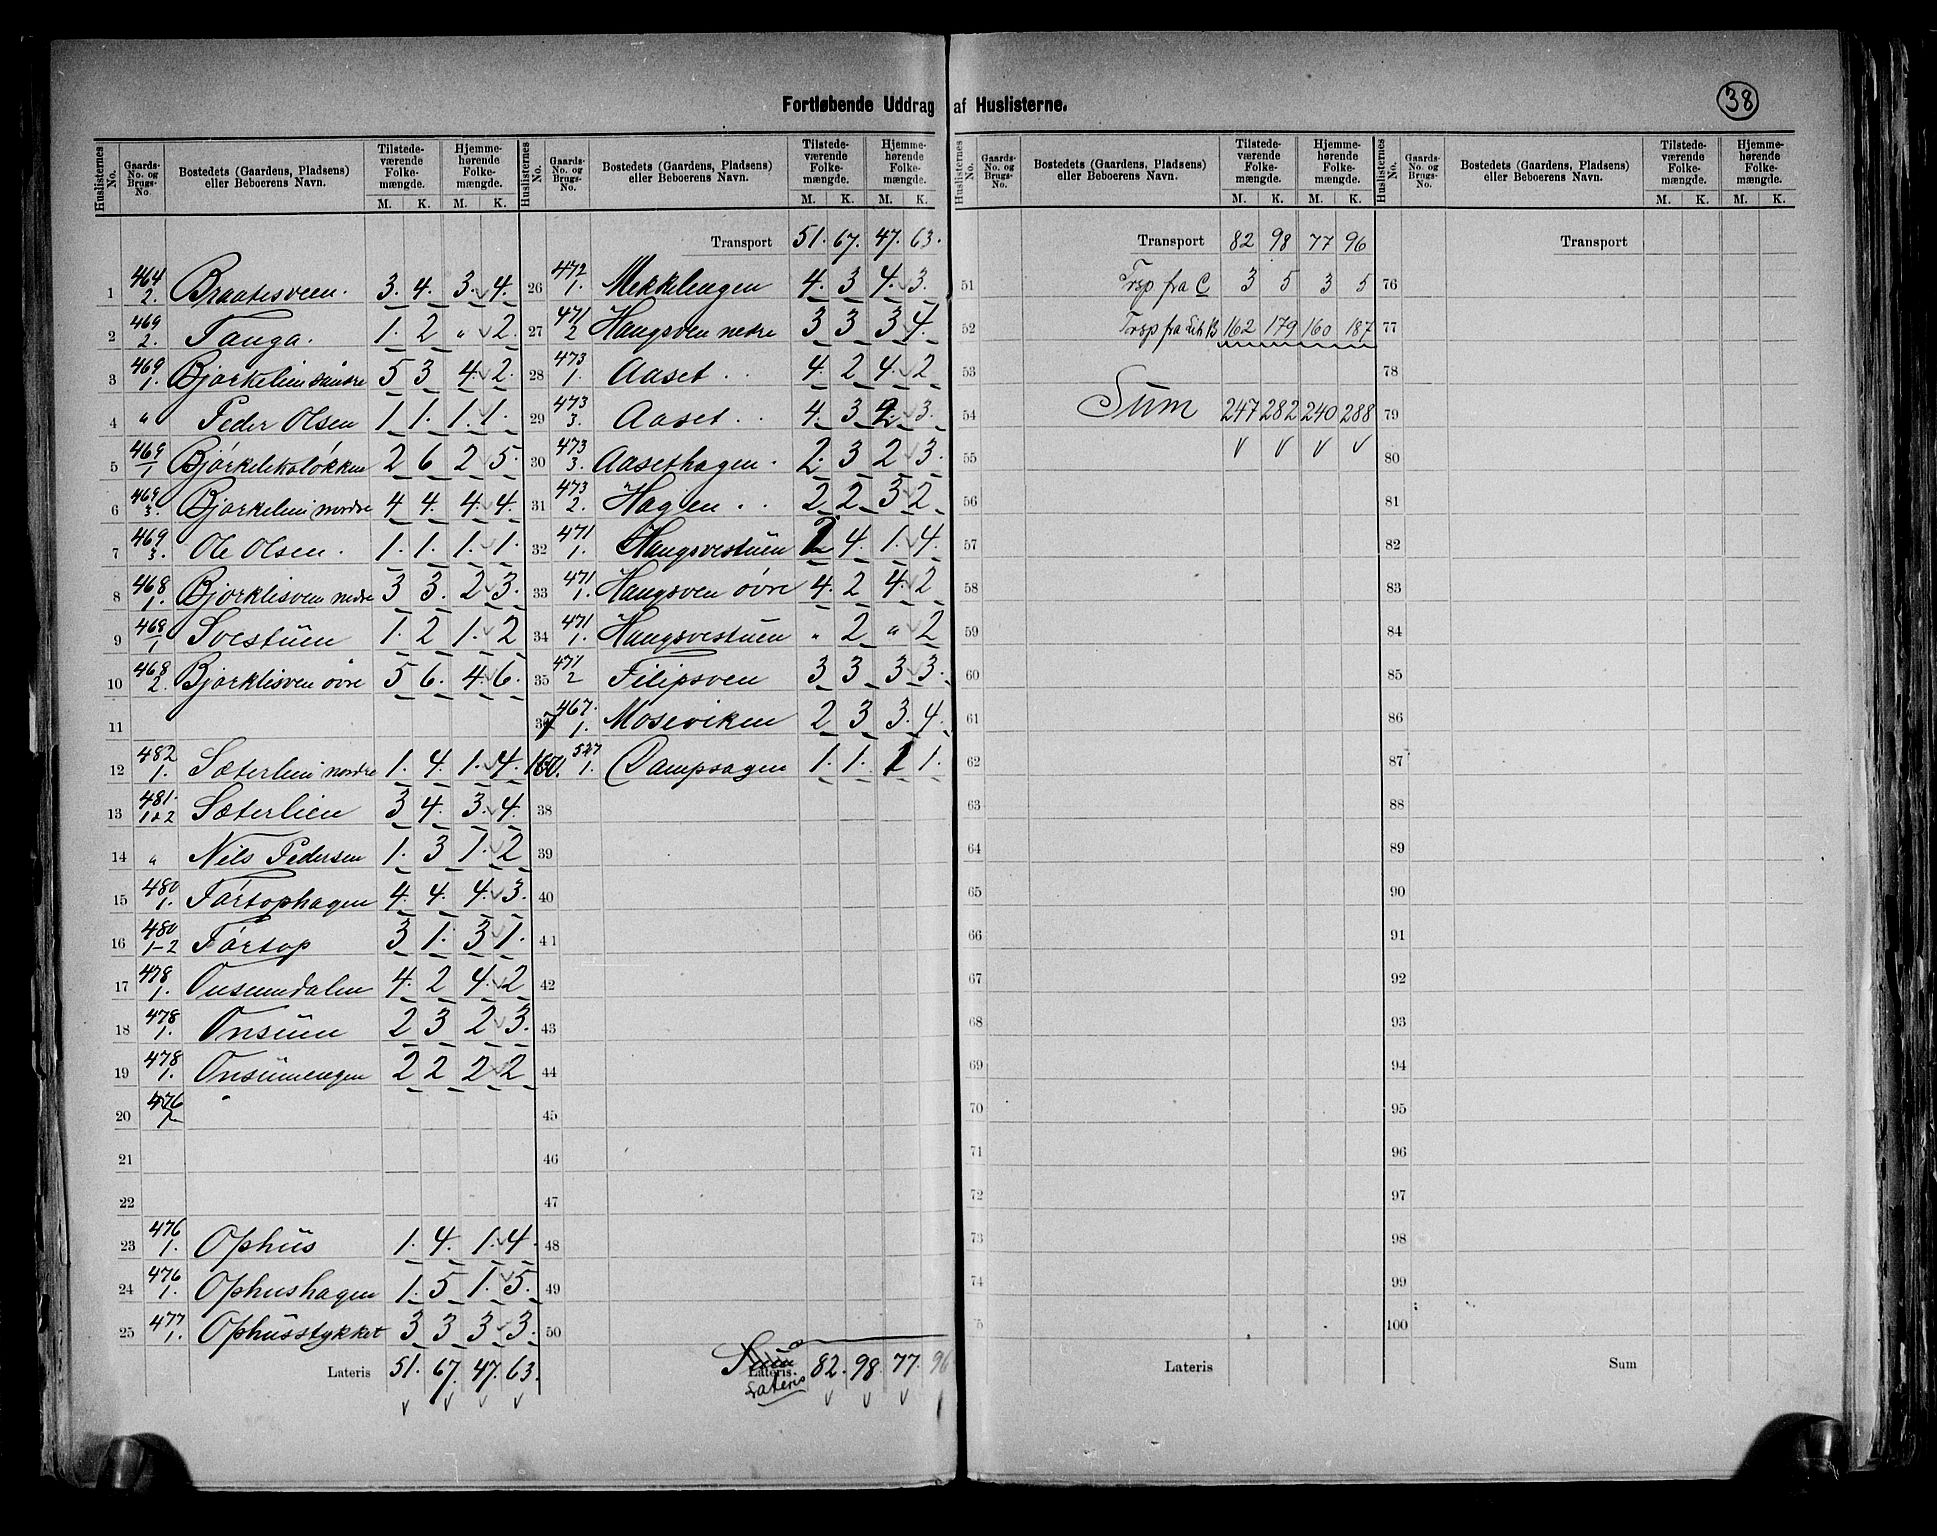 Fortløbende Uddrag af Huslisterne.
38
Huslisternes No. | Gaards-No. og Brugs-No. | Bostedets (Gaardens, Pladsens) eller Beboerens Navn. | Tilstedeværende Folkemængde. M. K. | Hjemmehørende Folkemængde. M. K.
1 464/2. Braatesveen. 3. 4. 3. 4.
2 469/2. Tanga. 1. 2 „ 2.
3 469/1. Bjørkelien søndre 5 3 4. 2.
4 „ Peder Olsen 1 1. 1. 1.
5 469/1 Bjørkelikaløkken 2 6 2 5.
6 469/3. Bjørkelien nordre 4 4. 4. 4.
7 469/3. Ole Olsen. 1. 1. 1. 1.
8 468/1. Bjørklisven nedre 3 3. 2 3.
9 468/1 Svestuen 1. 2 1. 2
10 468/2. Bjørklisven øvre 5 6. 4. 6.
11
12 482/1. Sæterlien nordre 1. 4. 1. 4.
13 481./1+2 Sæterlien 3 4. 3. 4.
14 „ Nils Pedersen 1. 3 1. 2
15 480/1. Førsophagen 4. 4. 4. 3.
16 480/1-2 Førsop 3 1. 3 1.
17 478/1. Onsumdalen 4. 2 4. 2
18 478/1. Onsum 2 3 2 3.
19 478/1. Onsumengen 2 2 2 2
20 476
21
22
23 476/1. Ophus 1. 4. 1. 4.
24 476/1. Ophushagen 1. 5 1. 5.
25 477/1. Ophusstykket 3 3 3 3.
Lateris 51. 67. 47. 63.
Huslisternes No. | Gaards-No. og Brugs-No. | Bostedets (Gaardens, Pladsens) eller Beboerens Navn. | Tilstedeværende Folkemængde. M. K. | Hjemmehørende Folkemængde. M. K.
Transport 51. 67. 47. 63.
26 472/1. Mekkelengen 4. 3 4. 3.
27 471/2 Haugsven nedre 3 3 3 4.
28 473/1. Aaset . . 4. 2 4. 2
29 473/3. Aaset . . 4. 3 2. 3.
30 473/3. Aasethagen. 2. 3 2 3.
31 473/2. Hagen . . 2 2 3 2.
32 471/1. Haugsvestuen 4. 1. 4.
33 471/1. Haugsven øvre 4. 2 4. 2
34 471/1. Haugsvestuen „ 2 „ 2
35 471/2 Filipsven 3 3 3 3.
467./1. Moseviken 2 3 3. 4.
527/1. Dampsagen 1. 1. 1.
38
39
40
41
42
43
44
45
46
47
48
49
50
Lateris.
Lateris 82. 98. 77. 96
Huslisternes No. | Gaards-No. og Brugs-No. | Bostedets (Gaardens, Pladsens) eller Beboerens Navn. | Tilstedeværende Folkemængde. M. K. | Hjemmehørende Folkemængde. M. K.
Transport 82 98 77 96
51 Trsp fra C 3 5 3 5
52 Trsp fra Litr B 162 179 160 187
53
54 Sum 247 282 240 288
55
56
57
58
59
60
61
62
63
64
65
66
67
68
69
70
71
72
73
74
Lateris
Huslisternes No. | Gaards-No. og Brugs-No. | Bostedets (Gaardens, Pladsens) eller Beboerens Navn. | Tilstedeværende Folkemængde. M. K. | Hjemmehørende Folkemængde. M. K.
Transport
76
77
78
79
80
81
82
83
84
85
86
87
88
89
90
91
92
93
94
95
96
97
98
99
100
Sum